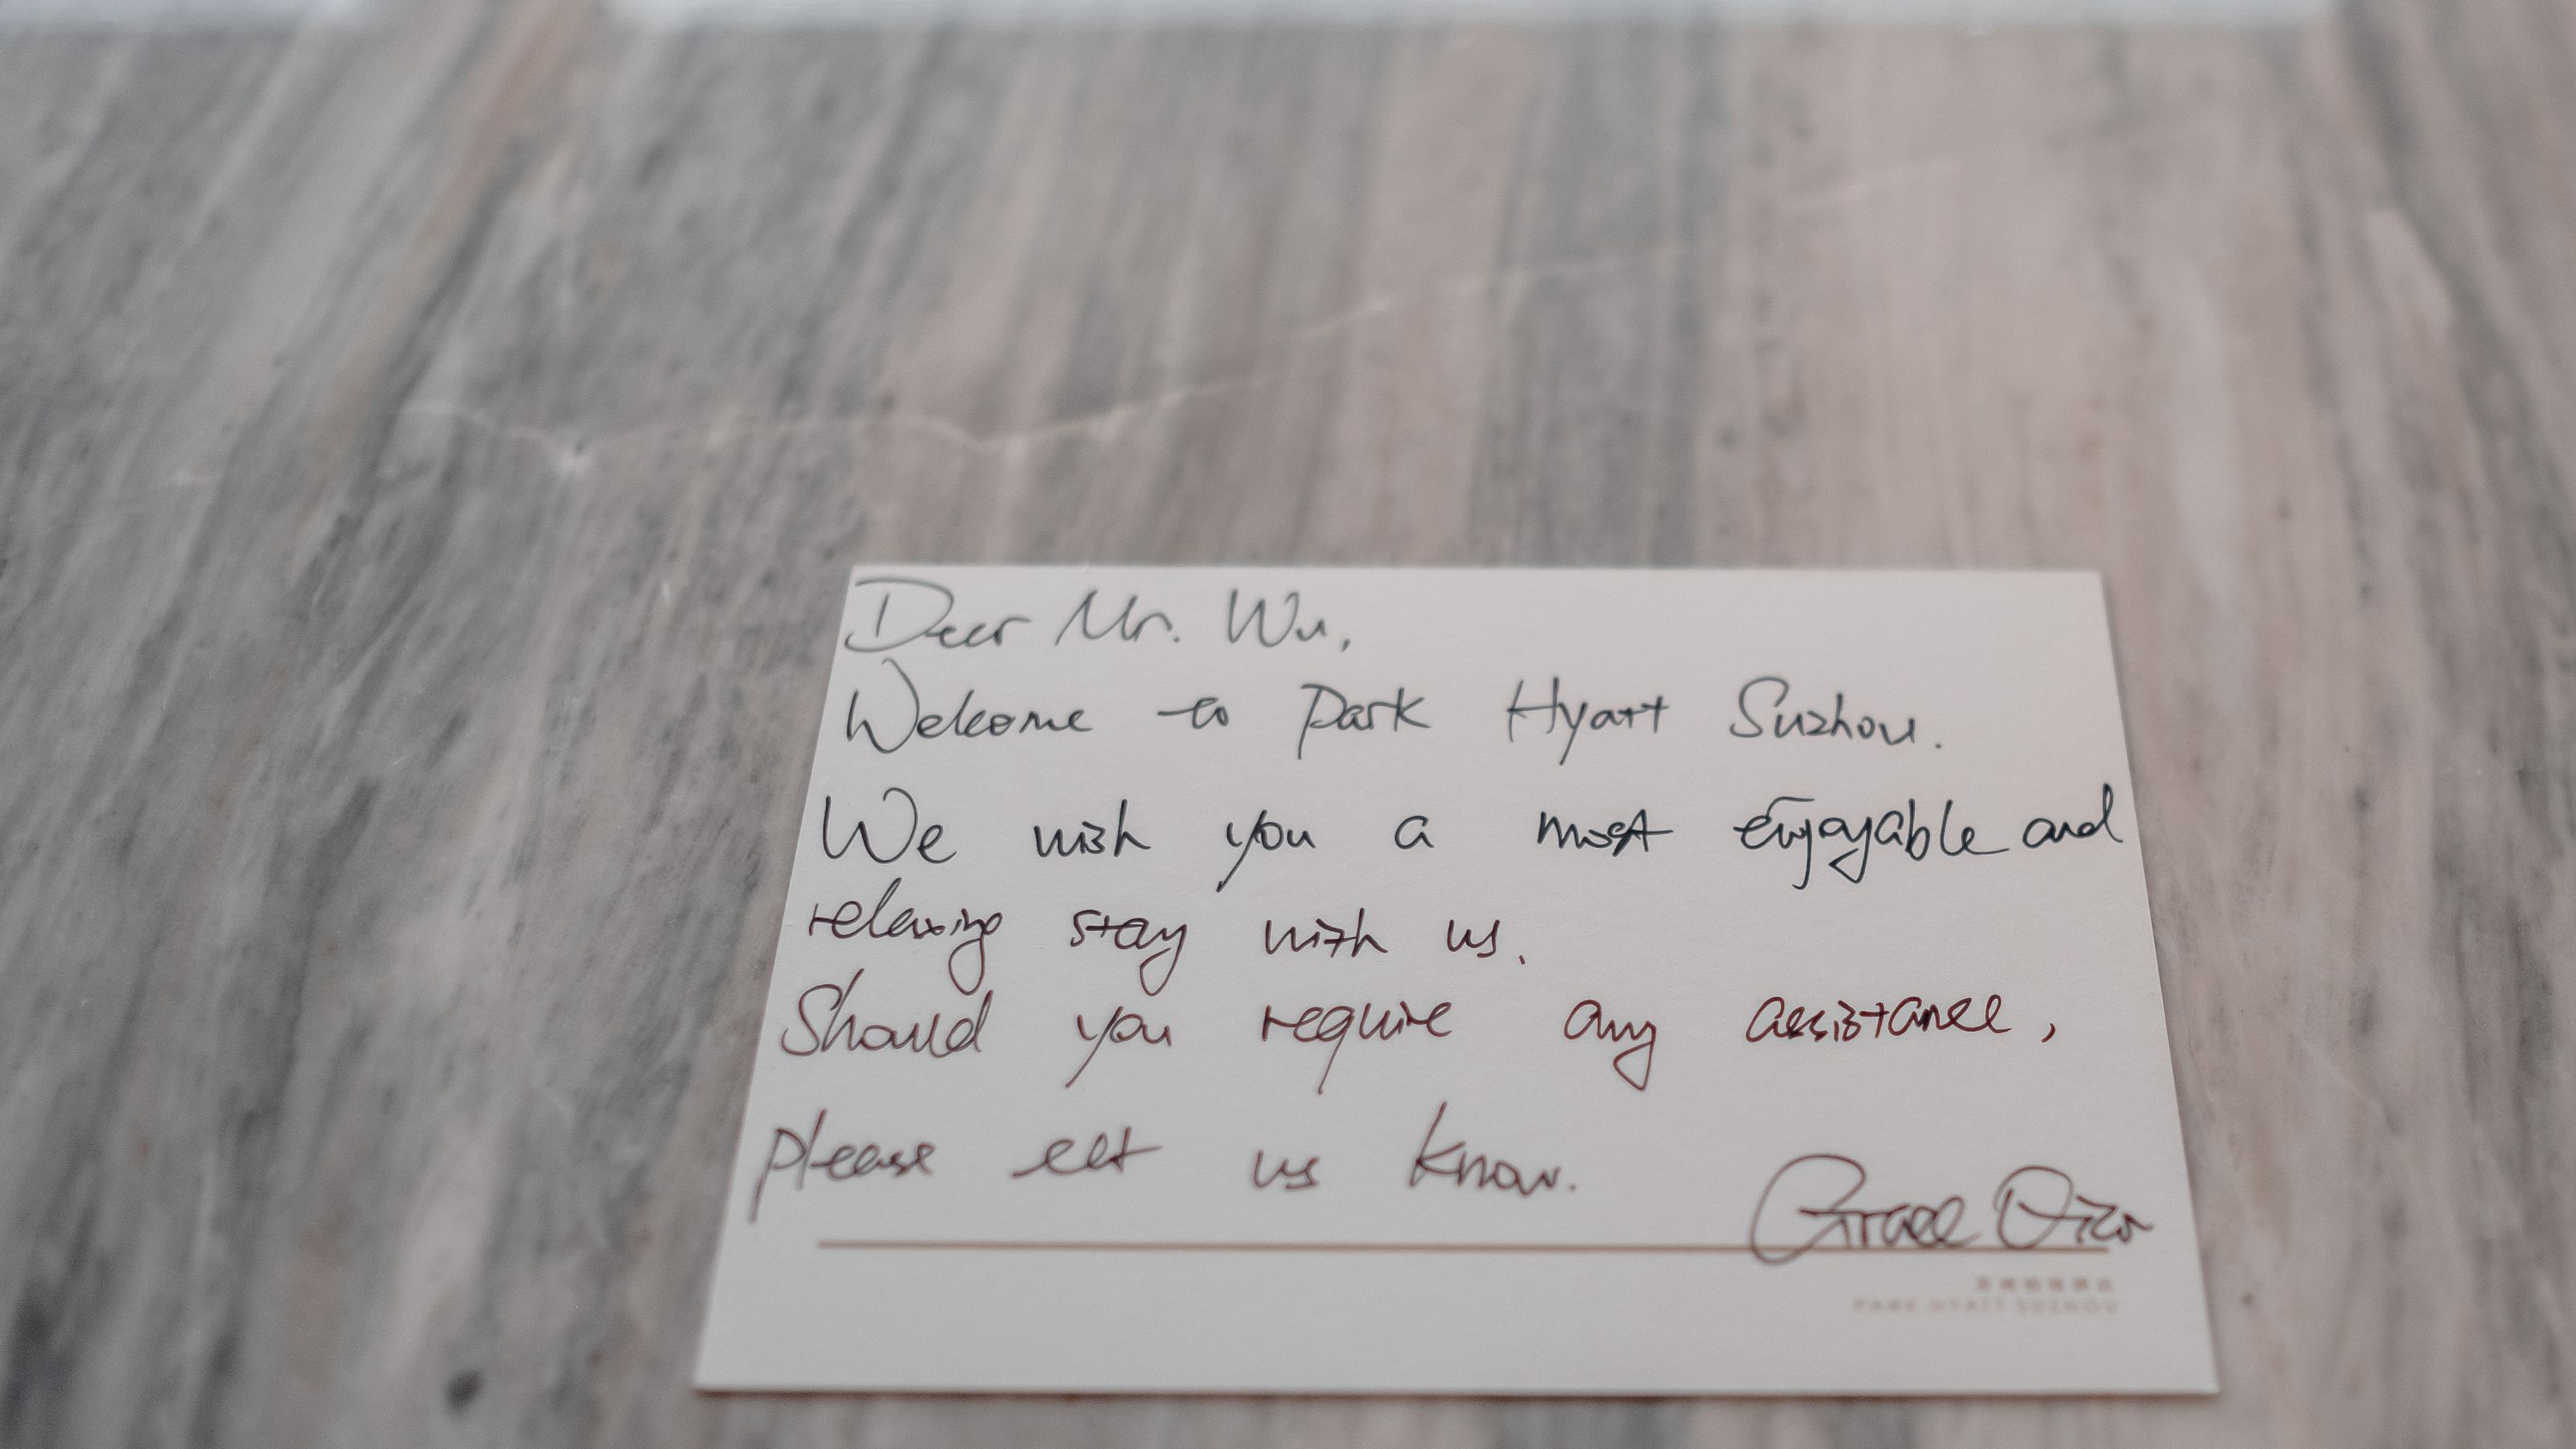 Dear Mr. Wu,
Welcome to Park Hyatt Suzhou.
We wish you a most enjoyable and
relaxing stay with us.
Should you require any assistance,
please elt us know.
Grace
PARK HYATT SUZHOU